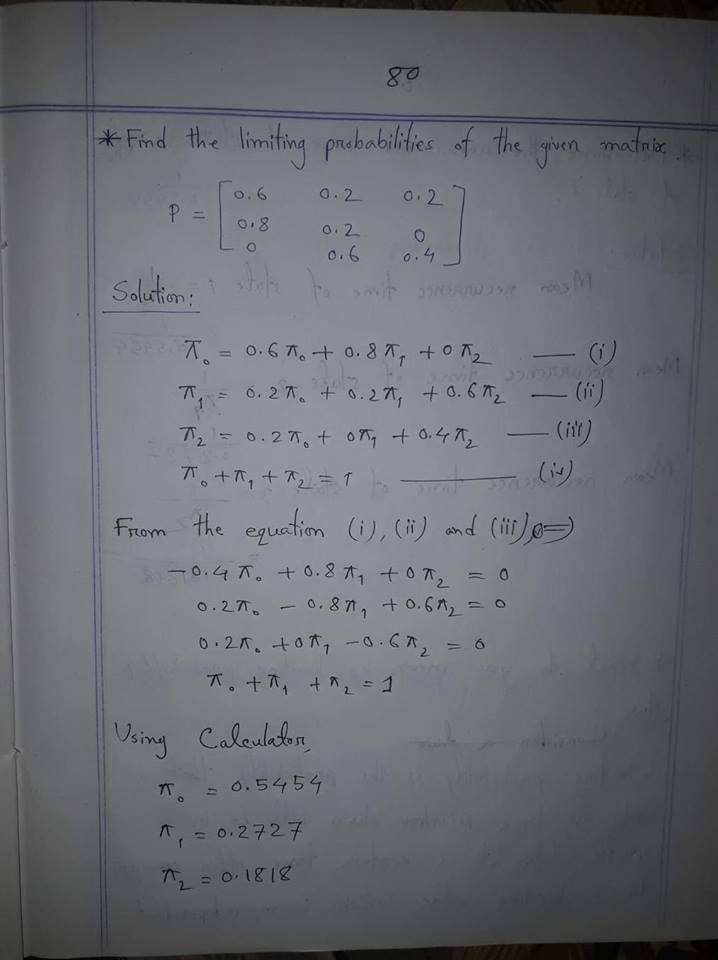 80
* Find the limiting probabilities of the given matrix.
P = [ 0.6 0.2 0.2
0.8 0.2 0
0 0.6 0.4 ]
Solution:
π₀ = 0.6π₀ + 0.8π₁ + 0π₂ —— (i)
π₁ = 0.2π₀ + 0.2π₁ + 0.6π₂ — (ii)
π₂ = 0.2π₀ + 0π₁ + 0.4π₂ —— (iii)
π₀ + π₁ + π₂ = 1 ———— (iv)
From the equation (i), (ii) and (iii), ⇒
-0.4π₀ + 0.8π₁ + 0π₂ = 0
0.2π₀ - 0.8π₁ + 0.6π₂ = 0
0.2π₀ + 0π₁ - 0.6π₂ = 0
π₀ + π₁ + π₂ = 1
Using Calculator,
π₀ = 0.5454
π₁ = 0.2727
π₂ = 0.1818